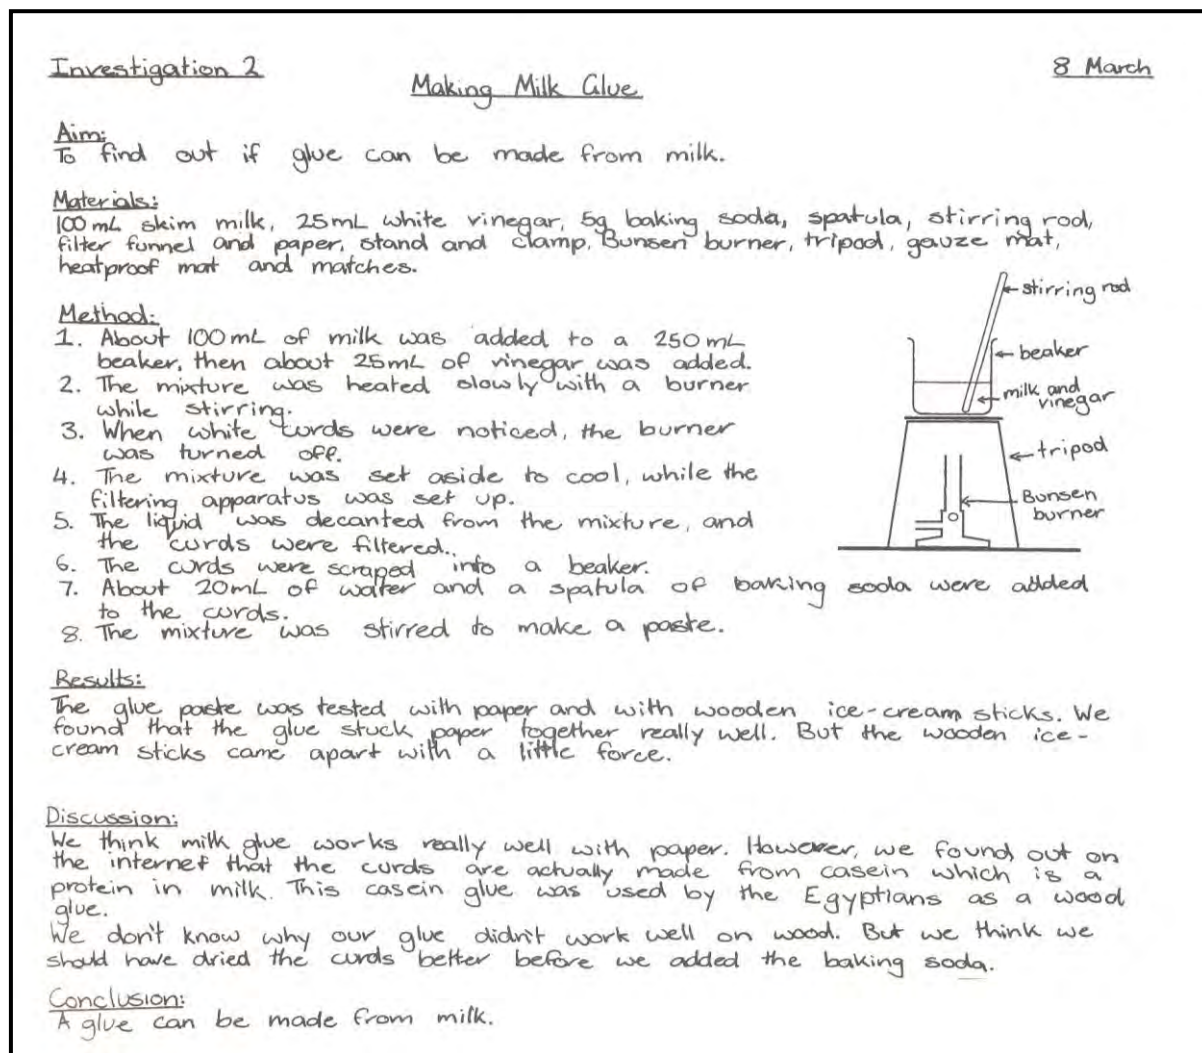 Investigation 2
8 March
Making Milk Glue
Aim:
To find out if glue can be made from milk.
Materials:
100mL skim milk, 25mL white vinegar, 5g baking soda, spatula, stirring rod,
filter funnel and paper, stand and clamp, Bunsen burner, tripod, gauze mat,
heatproof mat and matches.
Method:
1. About 100mL of milk was added to a 250mL
beaker, then about 25mL of vinegar was added.
2. The mixture was heated slowly with a burner
while stirring.
3. When white curds were noticed, the burner
was turned off.
4. The mixture was set aside to cool, while the
filtering apparatus was set up.
5. The liquid was decanted from the mixture, and
the curds were filtered.
6. The curds were scraped into a beaker.
7. About 20mL of water and a spatula of baking soda were added
to the curds.
8. The mixture was stirred to make a paste.
stirring rod
beaker
milk and
vinegar
tripod
Bunsen
burner
Results:
The glue paste was tested with paper and with wooden ice-cream sticks. We
found that the glue stuck paper together really well. But the wooden ice-
cream sticks came apart with a little force.
Discussion:
We think milk glue works really well with paper. However, we found out on
the internet that the curds are actually made from casein which is a
protein in milk. This casein glue was used by the Egyptians as a wood
glue.
We don't know why our glue didn't work well on wood. But we think we
should have dried the curds better before we added the baking soda.
Conclusion:
A glue can be made from milk.